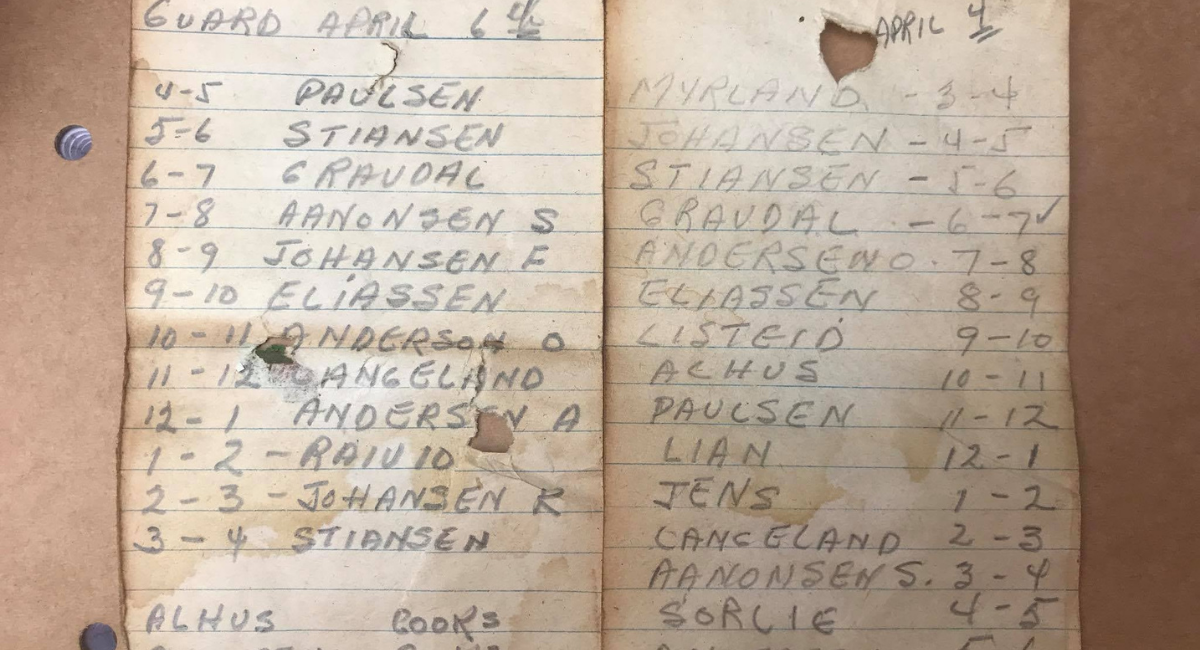 GUARD APRIL 6 4
4-5 PAULSEN
5-6 STIANSEN
6-7 GRAUDAL
7-8 AANONSEN S
8-9 JOHANSEN F
9-10 ELIASSEN
10-11 ANDERSON O
11-12 LANGELAND
12-1 ANDERSEN A
1-2 - RAIUID
2-3 - JOHANSEN R
3-4 STIANSEN
ALHUS COOKS
APRIL 4
MYRLAND - 3-4
JOHANSEN - 4-5
STIANSEN - 5-6
GRAUDAL - 6-7✓
ANDERSEN O. 7-8
ELIASSEN 8-9
LISTEID 9-10
ALHUS 10-11
PAULSEN 11-12
LIAN 12-1
JENS 1-2
LANGELAND 2-3
AANONSEN S. 3-4
SORLIE 4-5